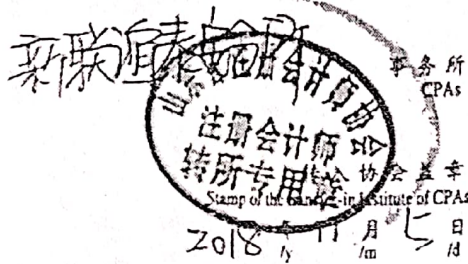 新联谊
事务所
CPAs
山东省注册会计师协会
注册会计师
转所专用章
协会盖章
Stamp of the transfer-in Institute of CPAs
2018年 11月 日
/y /m /d